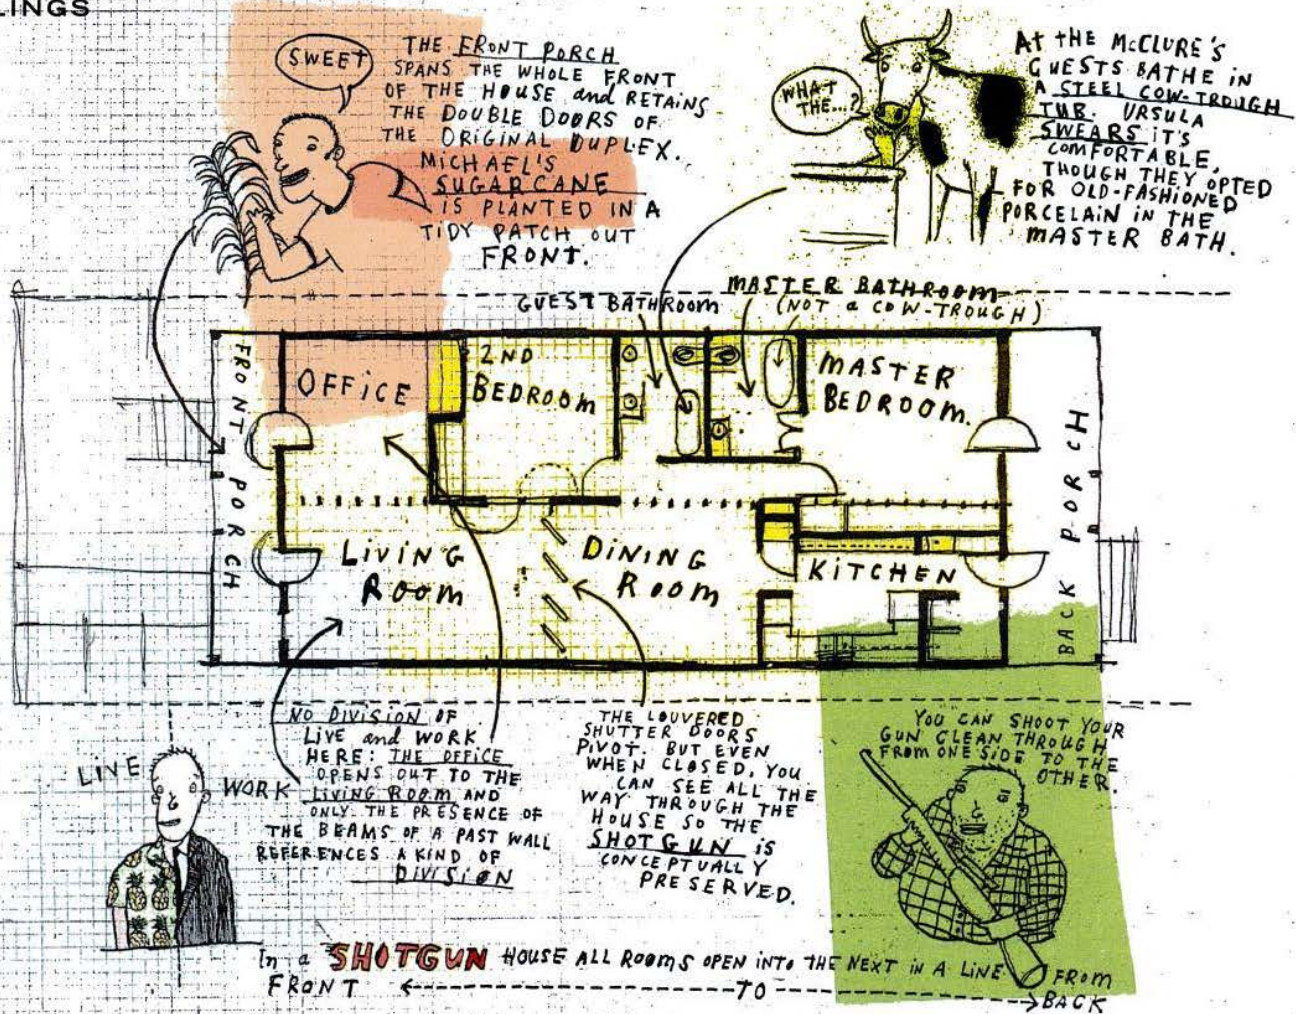 LINGS
SWEET
THE FRONT PORCH
SPANS THE WHOLE FRONT
OF THE HOUSE and RETAINS
THE DOUBLE DOORS OF
THE ORIGINAL DUPLEX.
MICHAEL'S
SUGARCANE
IS PLANTED IN A
TIDY PATCH OUT
FRONT.
WHAT
THE...?
AT THE McCLURE'S
GUESTS BATHE IN
A STEEL COW-TROUGH
TUB. URSULA
SWEARS IT'S
COMFORTABLE,
THOUGH THEY OPTED
FOR OLD-FASHIONED
PORCELAIN IN THE
MASTER BATH.
GUEST BATHROOM
MASTER BATHROOM
(NOT a COW-TROUGH)
FRONT PORCH
OFFICE
2ND
BEDROOM
MASTER
BEDROOM.
LIVING
ROOM
DINING
ROOM
KITCHEN
BACK PORCH
LIVE
WORK
NO DIVISION OF
LIVE and WORK
HERE: THE OFFICE
OPENS OUT TO THE
LIVING ROOM AND
ONLY THE PRESENCE OF
THE BEAMS OF A PAST WALL
REFERENCES A KIND OF
DIVISION
THE LOUVERED
SHUTTER DOORS
PIVOT. BUT EVEN
WHEN CLOSED, YOU
CAN SEE ALL THE
WAY THROUGH THE
HOUSE SO THE
SHOTGUN is
CONCEPTUALLY
PRESERVED.
YOU CAN SHOOT YOUR
GUN CLEAN THROUGH
FROM ONE SIDE TO THE
OTHER.
In a SHOTGUN HOUSE ALL ROOMS OPEN INTO THE NEXT IN A LINE FROM
FRONT TO BACK